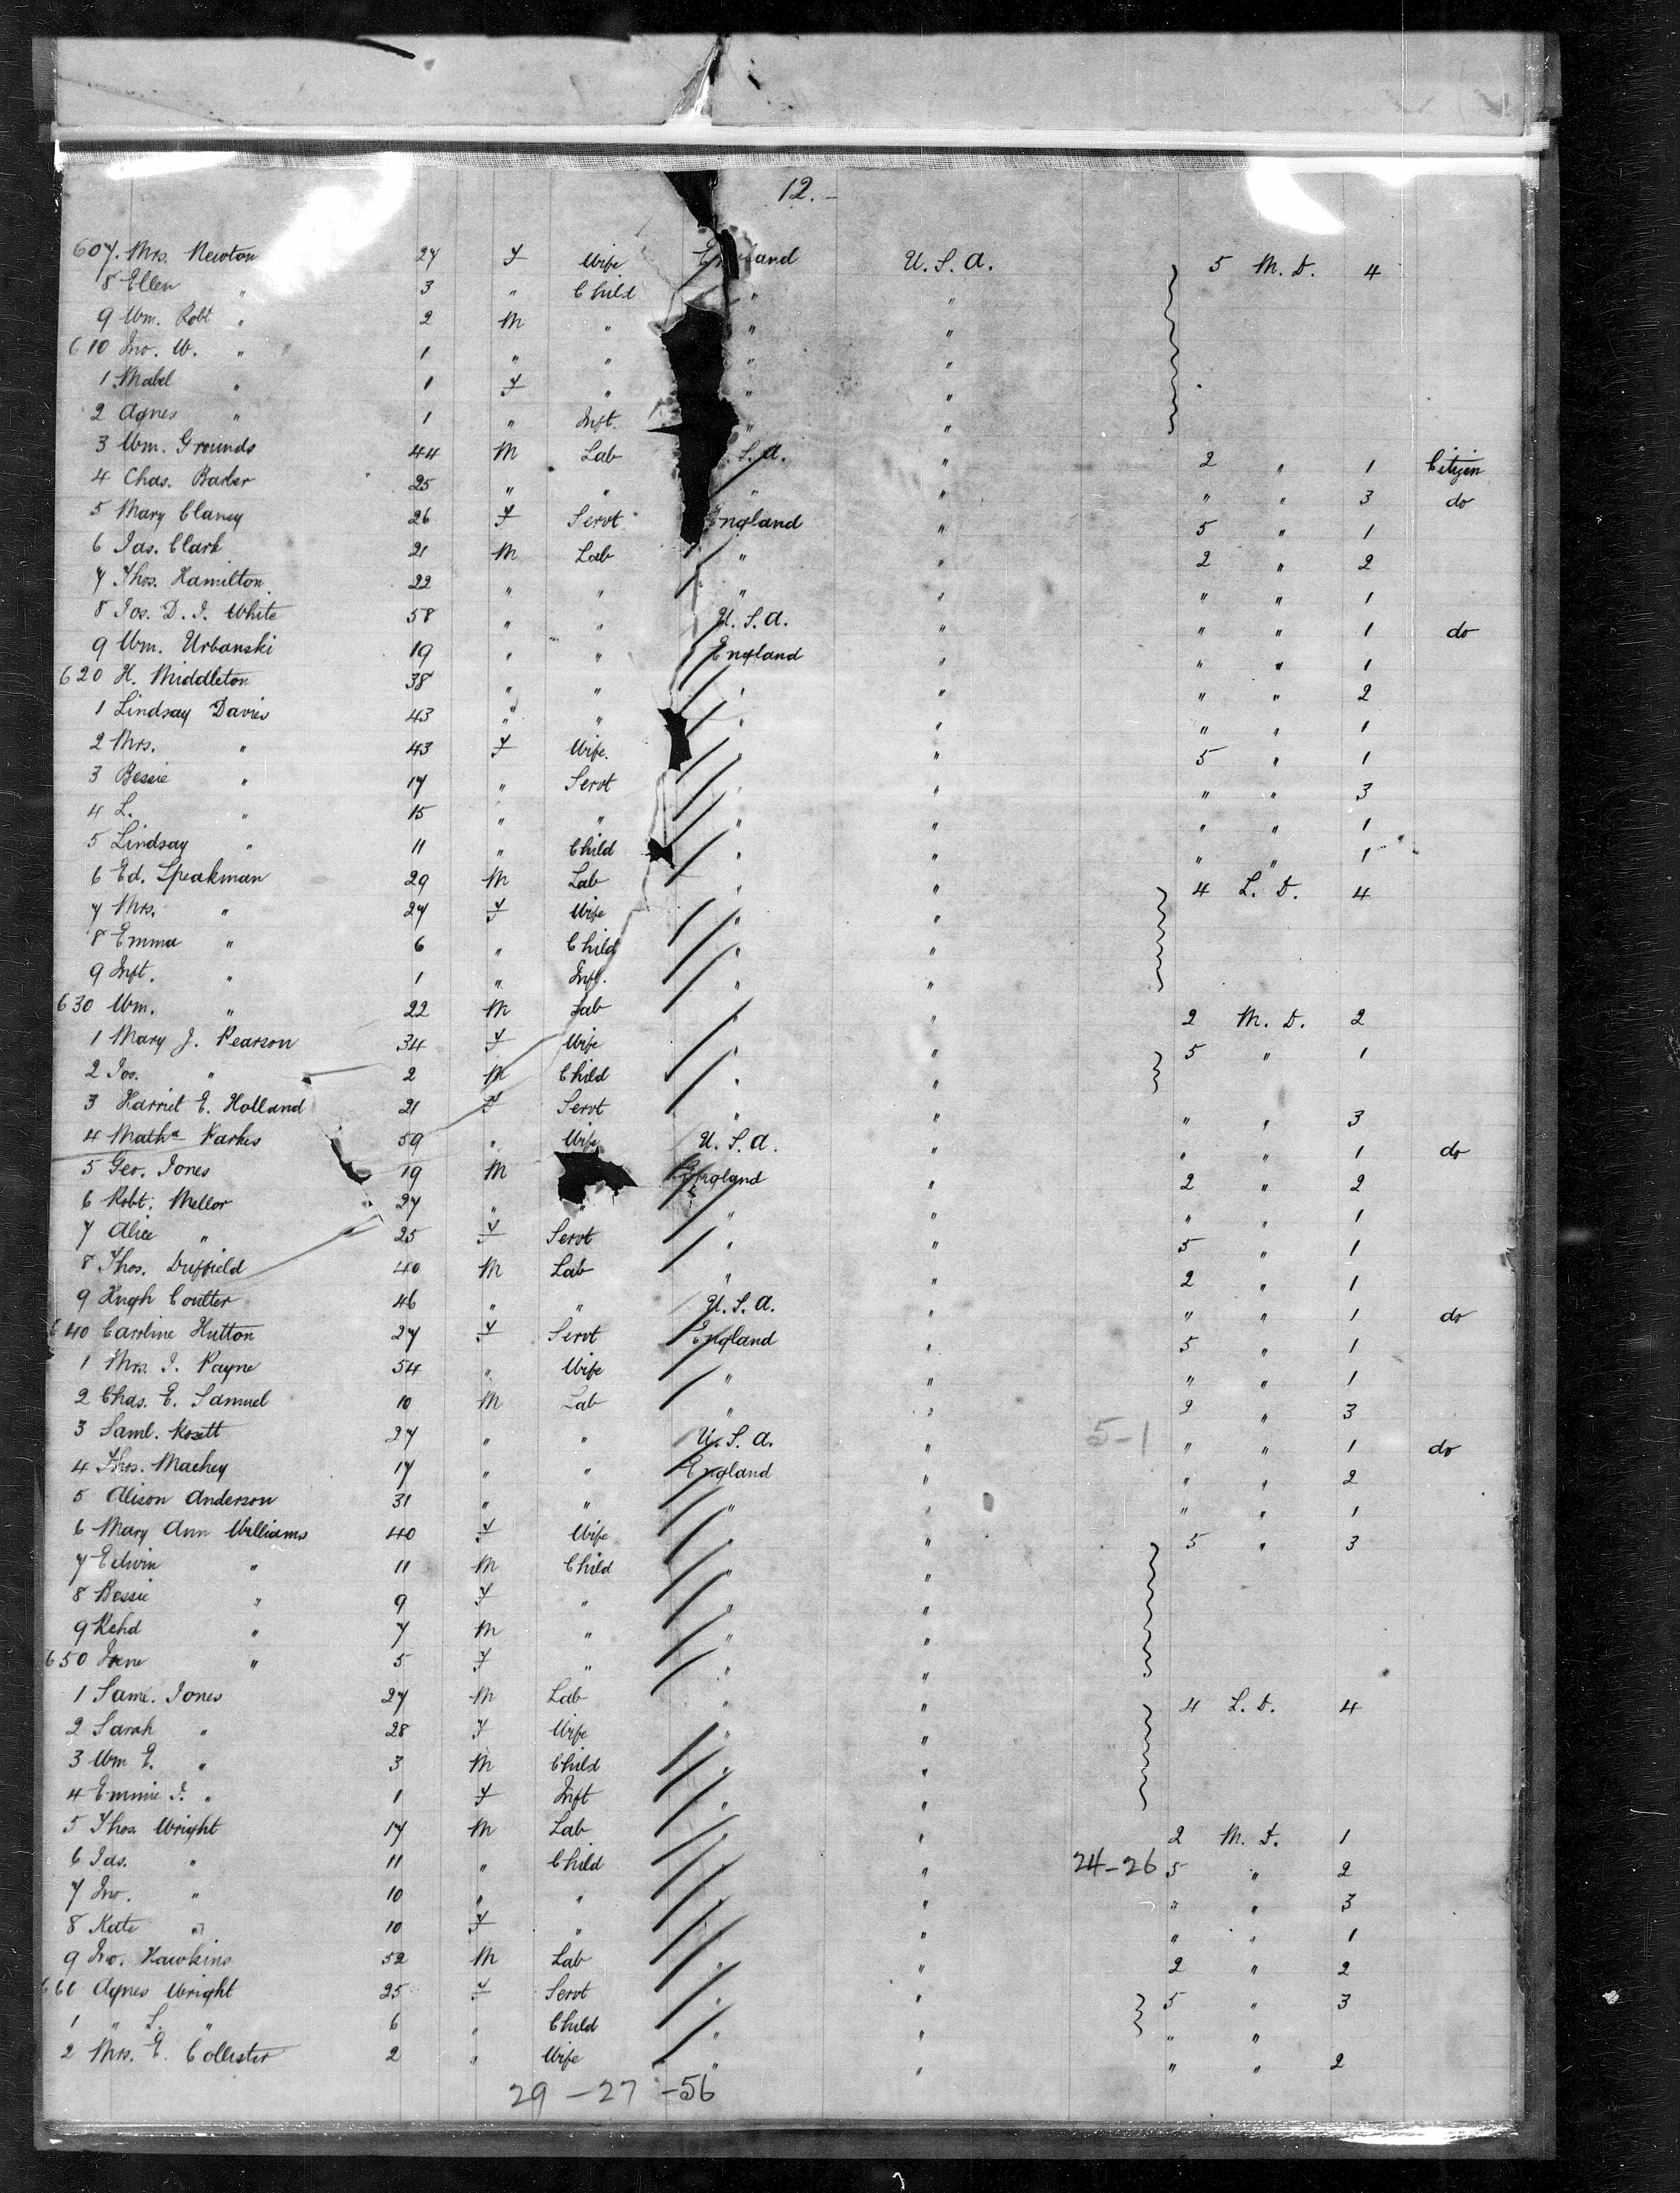 12.-
607. Mrs. Newton 27 F Wife England U.S.A. 5 M.D. 4
8 Ellen " 3 " Child " "
9 Wm. Robt " 2 M " " "
610 Jno. W. " 1 " " " "
1 Mabel " 1 F " " "
2 Agnes " 1 " Inft. " "
3 Wm. Grounds 44 M Lab S.A. " 2 " 1 Citizen
4 Chas. Barber 25 " " " " " " 3 do
5 Mary Clancy 26 F Servt England " 5 " 1
6 Jas. Clark 21 M Lab " " 2 " 2
7 Thos. Hamilton 22 " " " " " " 1
8 Jos. D. J. White 58 " " U.S.A. " " " 1 do
9 Wm. Urbanski 19 " " England " " " 1
620 H. Middleton 38 " " " " " " 2
1 Lindsay Davies 43 " " " " " " 1
2 Mrs. " 43 F Wife. " " 5 " 1
3 Bessie " 17 " Servt " " " " 3
4 L. " 15 " " " " " " 1
5 Lindsay " 11 " Child " " " " 1
6 Ed. Speakman 29 M Lab " " 4 L.D. 4
7 Mrs. " 27 F Wife " "
8 Emma " 6 " Child " "
9 Inft. " 1 " Inft. " "
630 Wm. " 22 M Lab " " 2 M.D. 2
1 Mary J. Pearson 34 F Wife " " 5 " 1
2 Jos. " 2 M Child " "
3 Harriet E. Holland 21 F Servt " " " " 3
4 Matha Parkes 59 " Wife U.S.A. " " " 1 do
5 Geo. Jones 19 M England " 2 " 2
6 Robt. Mellor 27 " " " " " " 1
7 Alice " 25 F Servt " " 5 " 1
8 Thos. Duffield 40 M Lab " " 2 " 1
9 Hugh Coulter 46 " " U.S.A. " " " 1 do
640 Caroline Hutton 27 F Servt England " 5 " 1
1 Mrs. J. Payne 54 " Wife " " " " 1
2 Chas. E. Samuel 10 M Lab " " 2 " 3
3 Saml. 27 " " U.S.A. " 5-1 " " 1 do
4 Thos. Machey 17 " " England " " " 2
5 Alison Anderson 31 " " " " " " 1
6 Mary Ann Williams 40 F Wife " " 5 " 3
7 Edwin " 11 M Child " "
8 Bessie " 9 F " " "
9 Richd " 7 M " " "
650 Jane " 5 F " " "
1 Saml. Jones 27 M Lab " " 4 L.D. 4
2 Sarah " 28 F Wife " "
3 Wm E. " 3 M Child " "
4 Emmie J. " 1 F Inft " "
5 Thos Wright 17 M Lab " 2 M.D. 1
6 Jas. " 11 " Child " 24-26 5 " 2
7 Jno. " 10 " " " " " " 3
8 Kate " 10 F " " " " 1
9 Jno. Hawkins 52 M Lab " " 2 " 2
660 Agnes Wright 25 F Servt " " 5 " 3
1 " S. " 6 " Child " " " "
2 Mrs. E. Collister 2 " Wife " " " " 2
29 -27 -56